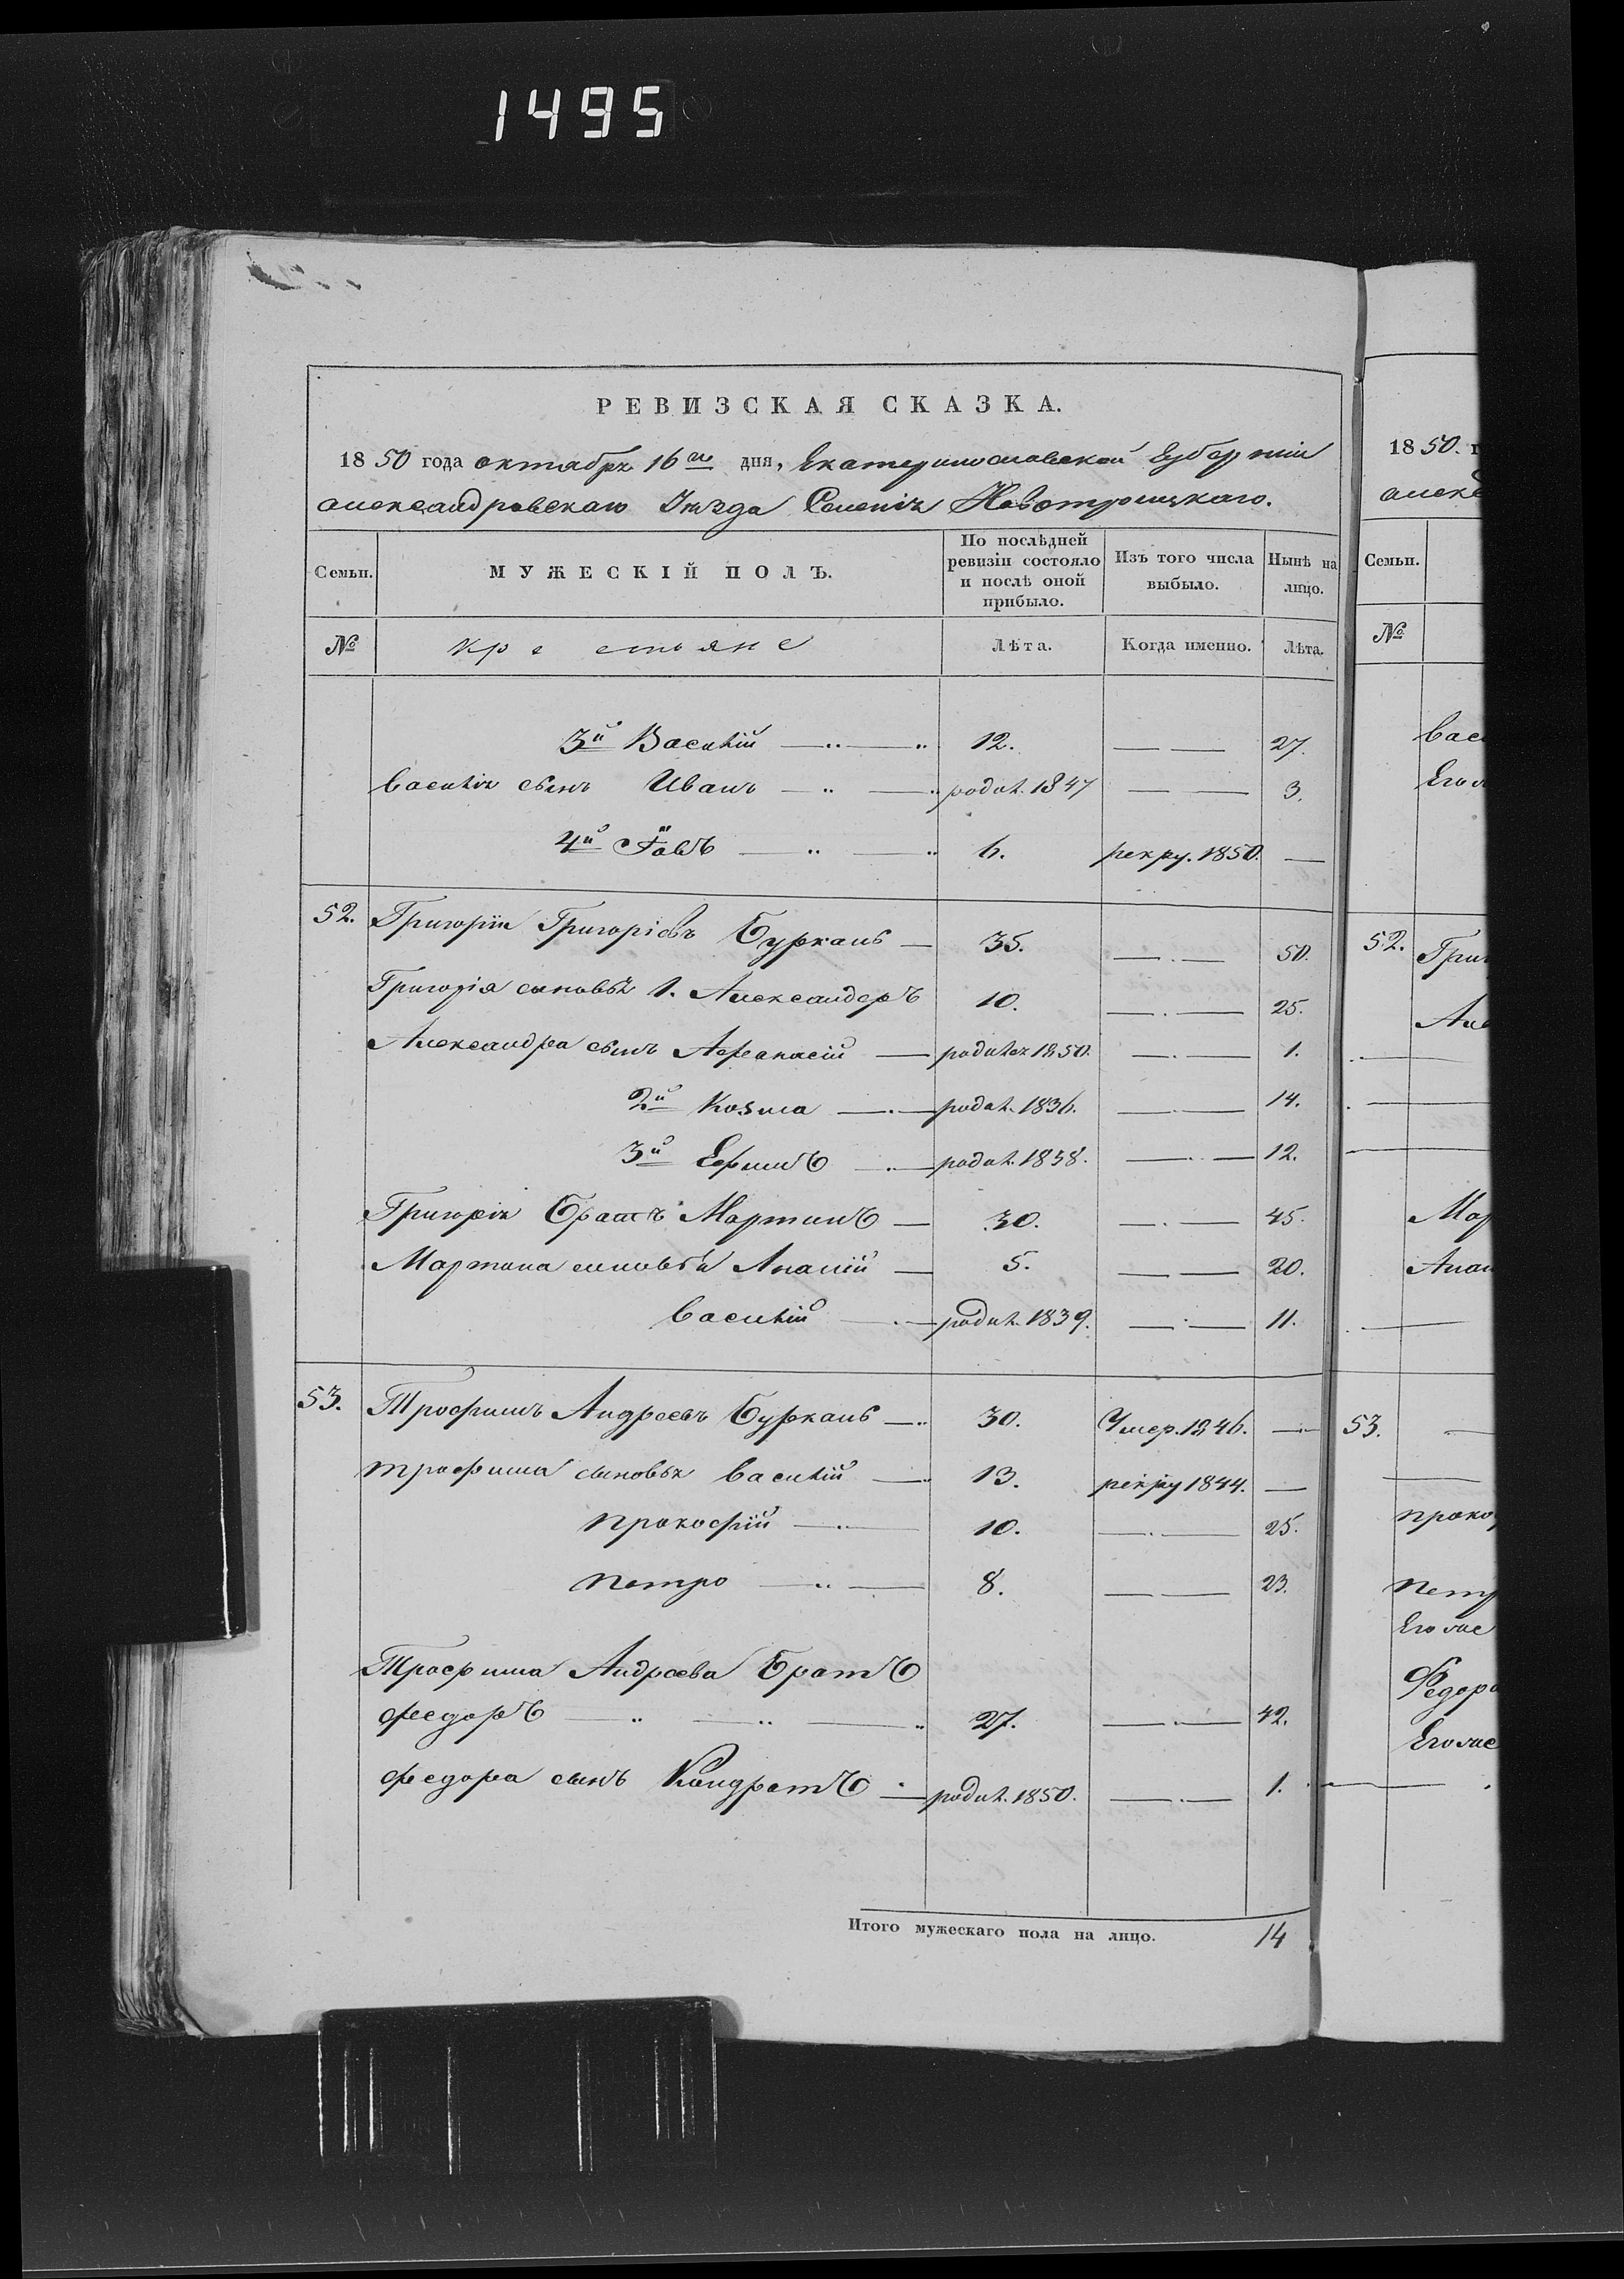 1495
РЕВИЗСКАЯ СКАЗКА.
1850 года октября 16го дня, Екатеринославской Губерніи
александровскаго Уѣзда Селенія Новотроицкаго.
Семьи. МУЖЕСКІЙ ПОЛЪ. По послѣдней ревизіи состояло и послѣ оной прибыло. Изъ того числа выбыло. Нынѣ на лицо.
№ крестьяне Лѣта. Когда именно. Лѣта.
3й Василій 12. 27.
Василія сынъ Иванъ родил. 1847 3.
4й Іовъ 6. рекру. 1850.
52. Григорій Григоріевъ Бурканъ 35. 50.
Григорія сыновья 1. Александеръ 10. 25.
Александра сынъ Афанасій родился 1850. 1.
2й Козма родил. 1836. 14.
3й Ефимъ родил. 1838. 12.
Григорія братъ Мартинъ 30. 45.
Мартина сыновья Ананій 5. 20.
Василій родил. 1839. 11.
53. Трофимъ Андреевъ Бурканъ 30. Умер. 1846.
трофима сыновья Василій 13. рекру 1844.
прокофій 10. 25.
петро 8. 23.
Трофима Андреева братъ
федоръ 27. 42.
федора сынъ Кондратъ родил. 1850. 1.
Итого мужескаго пола на лицо. 14
1850. г
алекс
Семьи.
№
Вас
Его
52. Григ
Але
Мар
Анан
53.
проко
петр
Его
Федор
Его